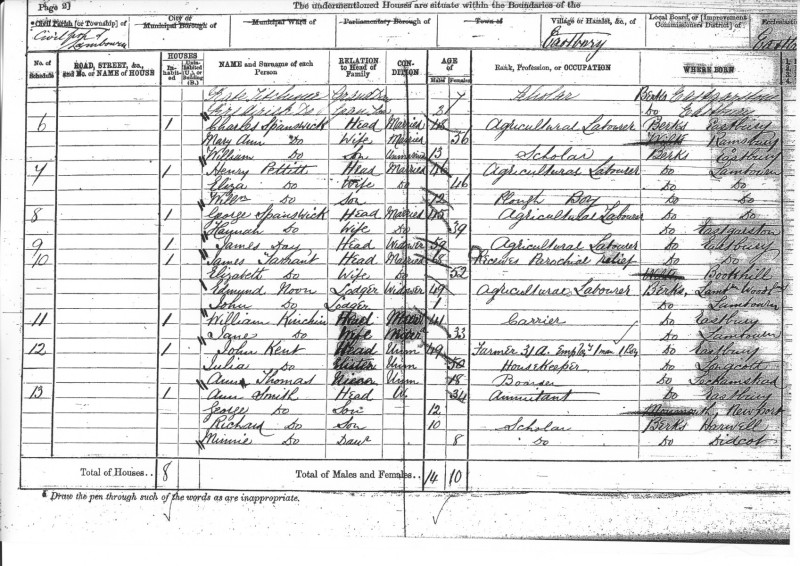 Page 2]
The undermentioned Houses are situate within the Boundaries of the
Civil Parish [or Township] of
City or Municipal Borough of
Municipal Ward of
Parliamentary Borough of
Town of
Village or Hamlet, &c., of
Local Board, or [Improvement Commissioners District] of
Ecclesiastical
Civil of Lambourn
Eastbury
No. of Schedule
ROAD, STREET, &c., and No. or NAME of HOUSE
HOUSES
Inhabited
Uninhabited (U.), or Building (B.)
NAME and Surname of each Person
RELATION to Head of Family
CONDITION
AGE of
Males
Females
Rank, Profession, or OCCUPATION
WHERE BORN
7 Scholar Berks
Do
6 1 Charles Spanswick Head Married 48 Agricultural Labourer Berks Eastbury
Mary Ann Do Wife Married 36 Ramsbury
William Do Son 13 Scholar Berks Eastbury
7 1 Henry Pettitt Head Married 46 Agricultural Labourer Do Lambourn
Eliza Do Wife Do 46 Do Do
Do Son 12 Plough Boy Do Do
8 1 George Spanswick Head Married 45 Agricultural Labourer Do Do
Hannah Do Wife Do 39 Do Eastgarston
9 1 James Day Head Widower 59 Agricultural Labourer Do Eastbury
10 1 James Tarrant Head Married 68 Receives Parochial Relief Do Do
Elizabeth Do Wife Do 52
Edmund Noon Lodger Widower 49 Agricultural Labourer Berks
John Do Lodger 1 Do Lambourn
11 1 William Kinchin Head 44 Carrier Do Eastbury
Jane Do Wife 33 Do Lambourn
12 1 John Kent Head Unm 49 Farmer 31 A. Employ 1 man 1 Boy Do Eastbury
Julia Do Sister Unm 50 House Keeper Do Longcott
Ann Thomas Niece Unm 18 Boarder Do
13 1 Ann Smith Head 34 Annuitant Do Eastbury
George Do Son 12 Newport
Richard Do Son 10 Scholar Berks Harwell
Minnie Do Daur 8 Do Do Didcot
Total of Houses.. 8
Total of Males and Females.. 14 10
Draw the pen through such of the words as are inappropriate.